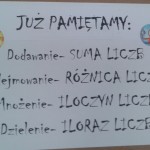 JUŻ PAMIĘTAMY:
Dodawanie- SUMA LICZB
ejmowanie- RÓŻNICA LICZ
Mnożenie- ILOCZYN LICZ
Dzielenie- ILORAZ LICZB